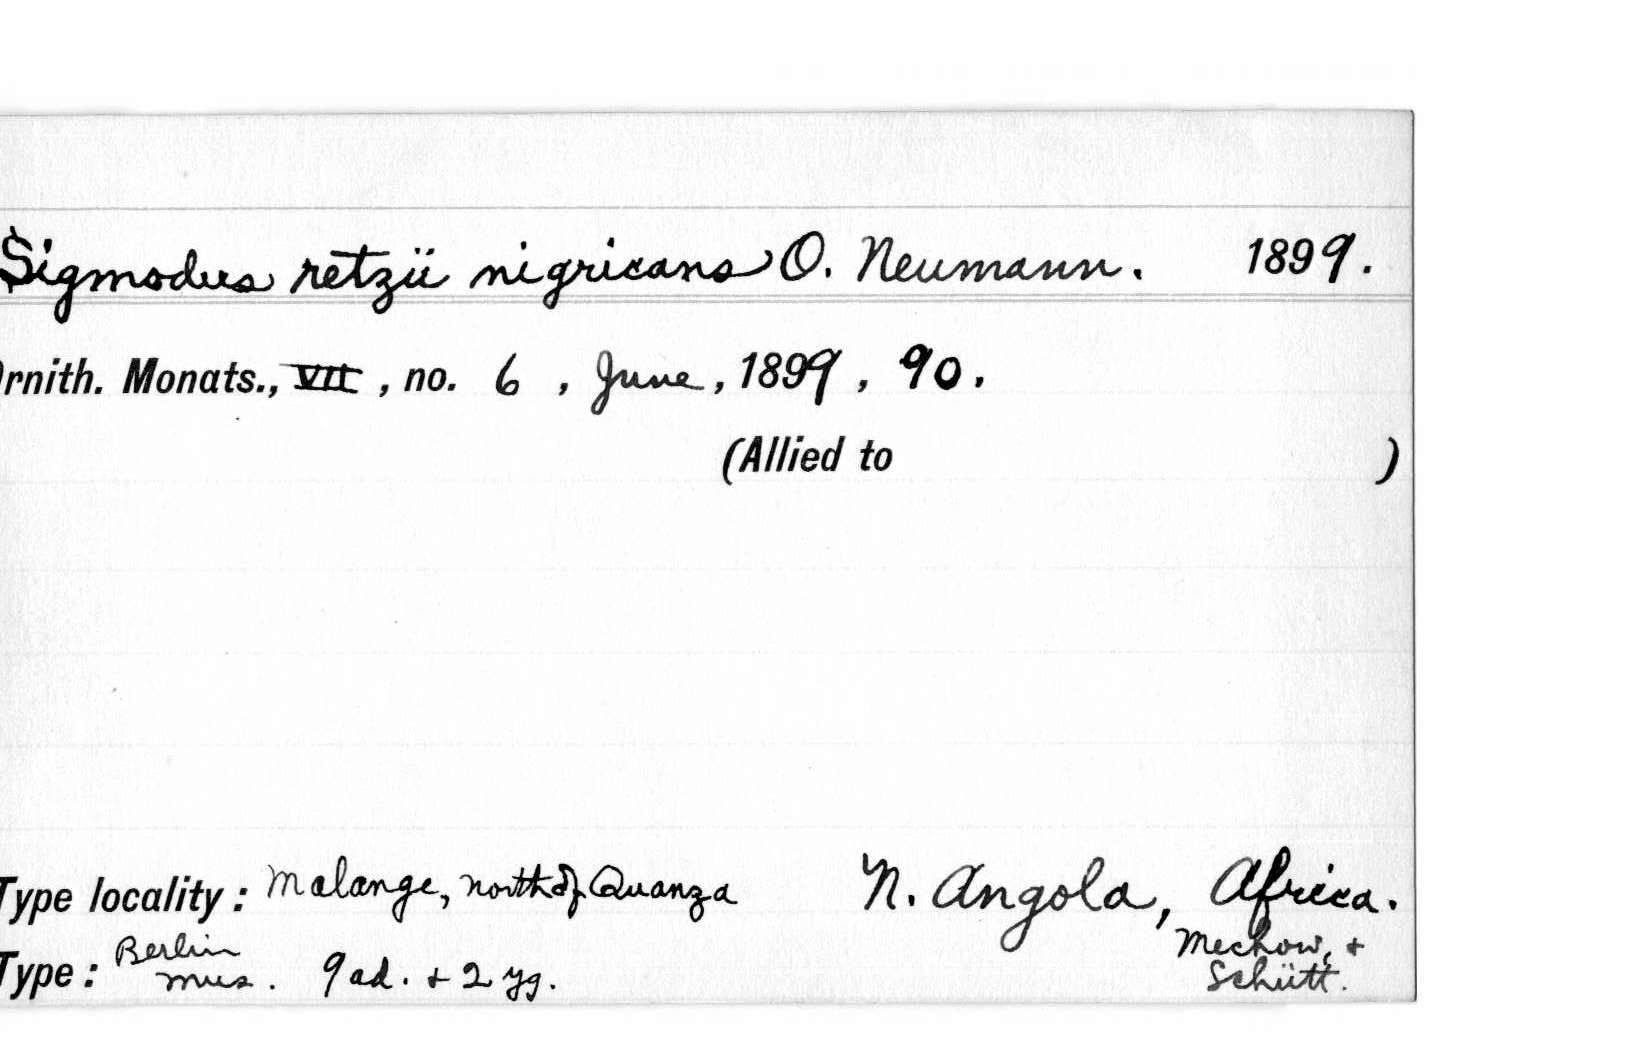 Sigmodus retzii nigricans O. Neumann. 1899.
rnith. Monats., VII, no. 6, June, 1899, 90.
(Allied to )
Type locality: Malange, north of Quanza N. Angola, Africa.
Type: Berlin Mus. 9 ad. + 2 yg. Mechow, + Schütt.